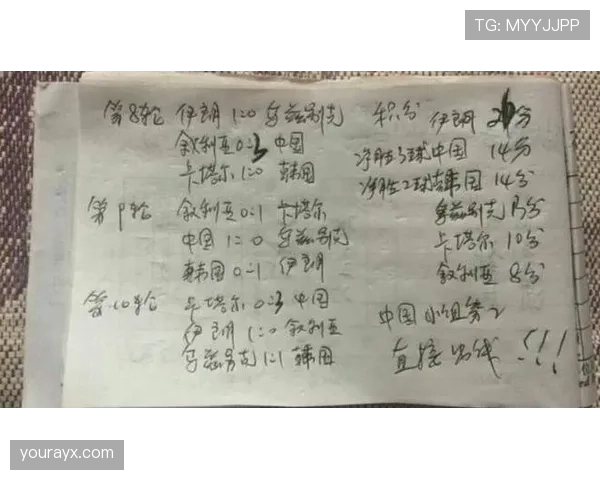 TG: MYYJJPP
第8轮 伊朗 1:0 乌兹别克
叙利亚 0:3 中国
卡塔尔 1:0 韩国
第9轮 叙利亚 0:1 卡塔尔
中国 1:0 乌兹别克
韩国 0:1 伊朗
第10轮 卡塔尔 0:3 中国
伊朗 1:0 叙利亚
乌兹别克 1:1 韩国
积分 伊朗 分
净胜3球 中国 14分
净胜2球 韩国 14分
乌兹别克 13分
卡塔尔 10分
叙利亚 8分
中国 小组第2
直接出线!!!
yourayx.com